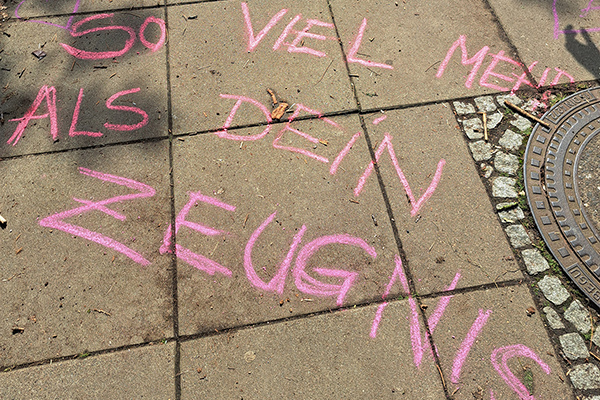 SO VIEL MEHR
ALS DEIN
ZEUGNIS